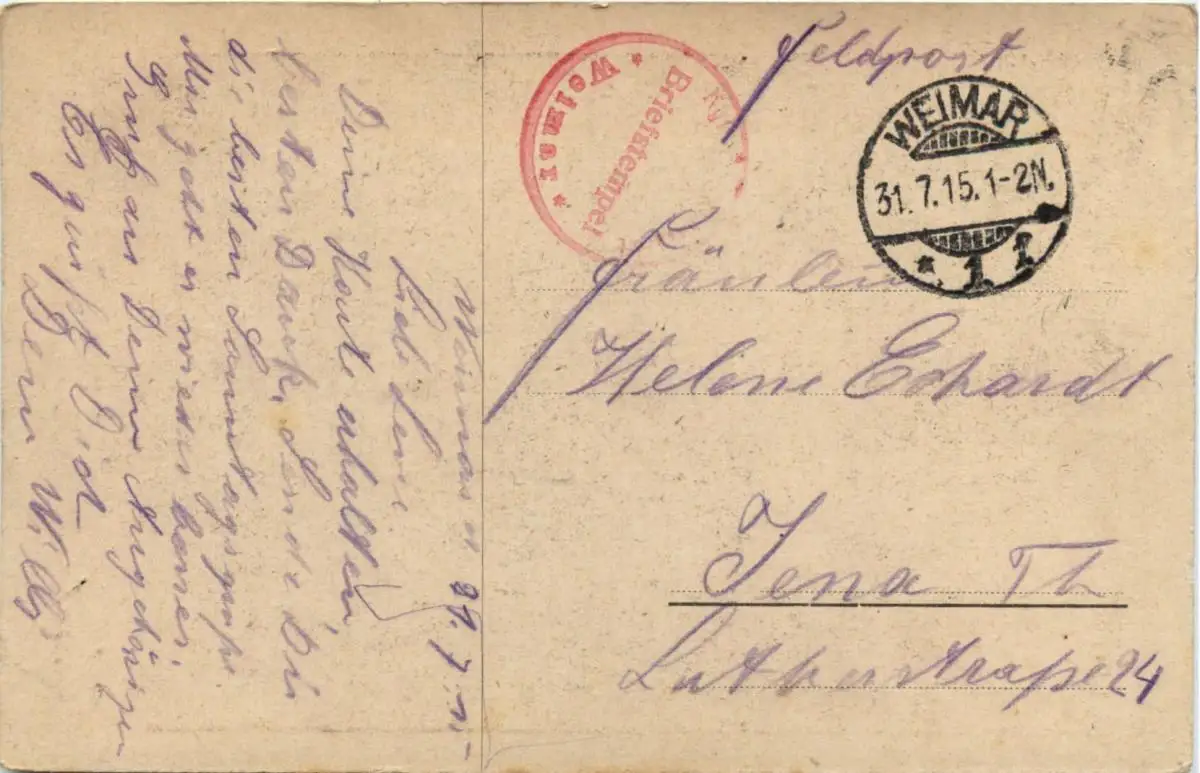 Weimar d 31.7.15
Liebe Leni.
Deine Karte erhalten,
besten Dank, Sende Dir
die besten Sonntagsgrüße
Mir geht es wieder besser.
Gruß aus Deine Angehörigen
Es grüßt Dich
Dein Willy
Feldpost
Briefstempel
* Weimar *
WEIMAR
31.7.15. 1-2N.
* 1
Fräulein
Helene Erhardt
Jena Th
Lutherstraße 24